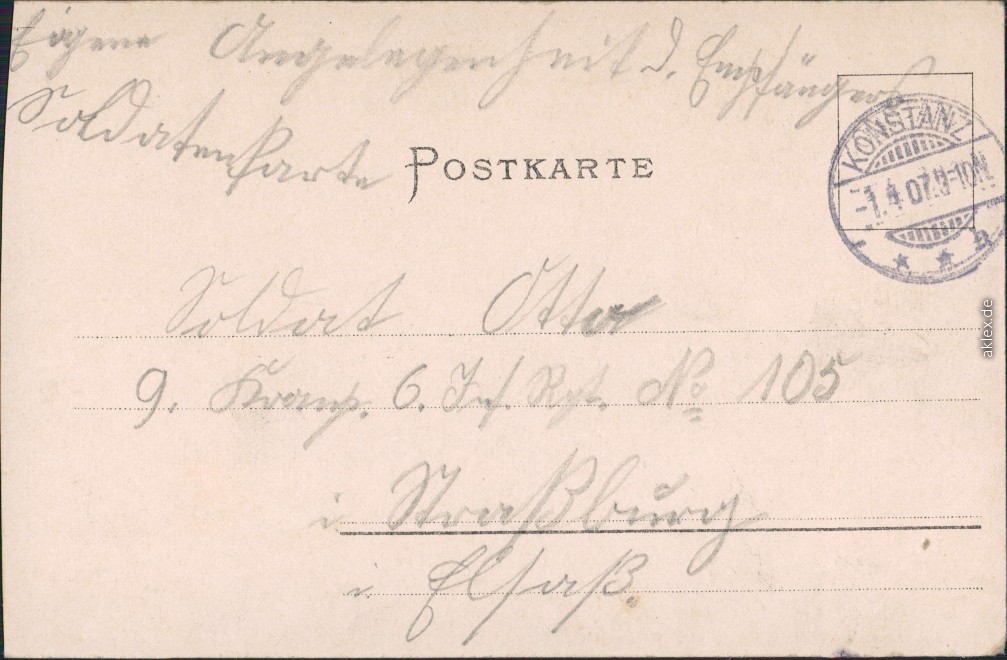 Eigene Angelegenheit d. Empfängers
Soldatenkarte
POSTKARTE
KONSTANZ
-1.4.07.9-10N.
Soldat Otto
9. Komp. 6. Inf. Rgt. No 105
i Straßburg
i. Elsaß.
aklex.de